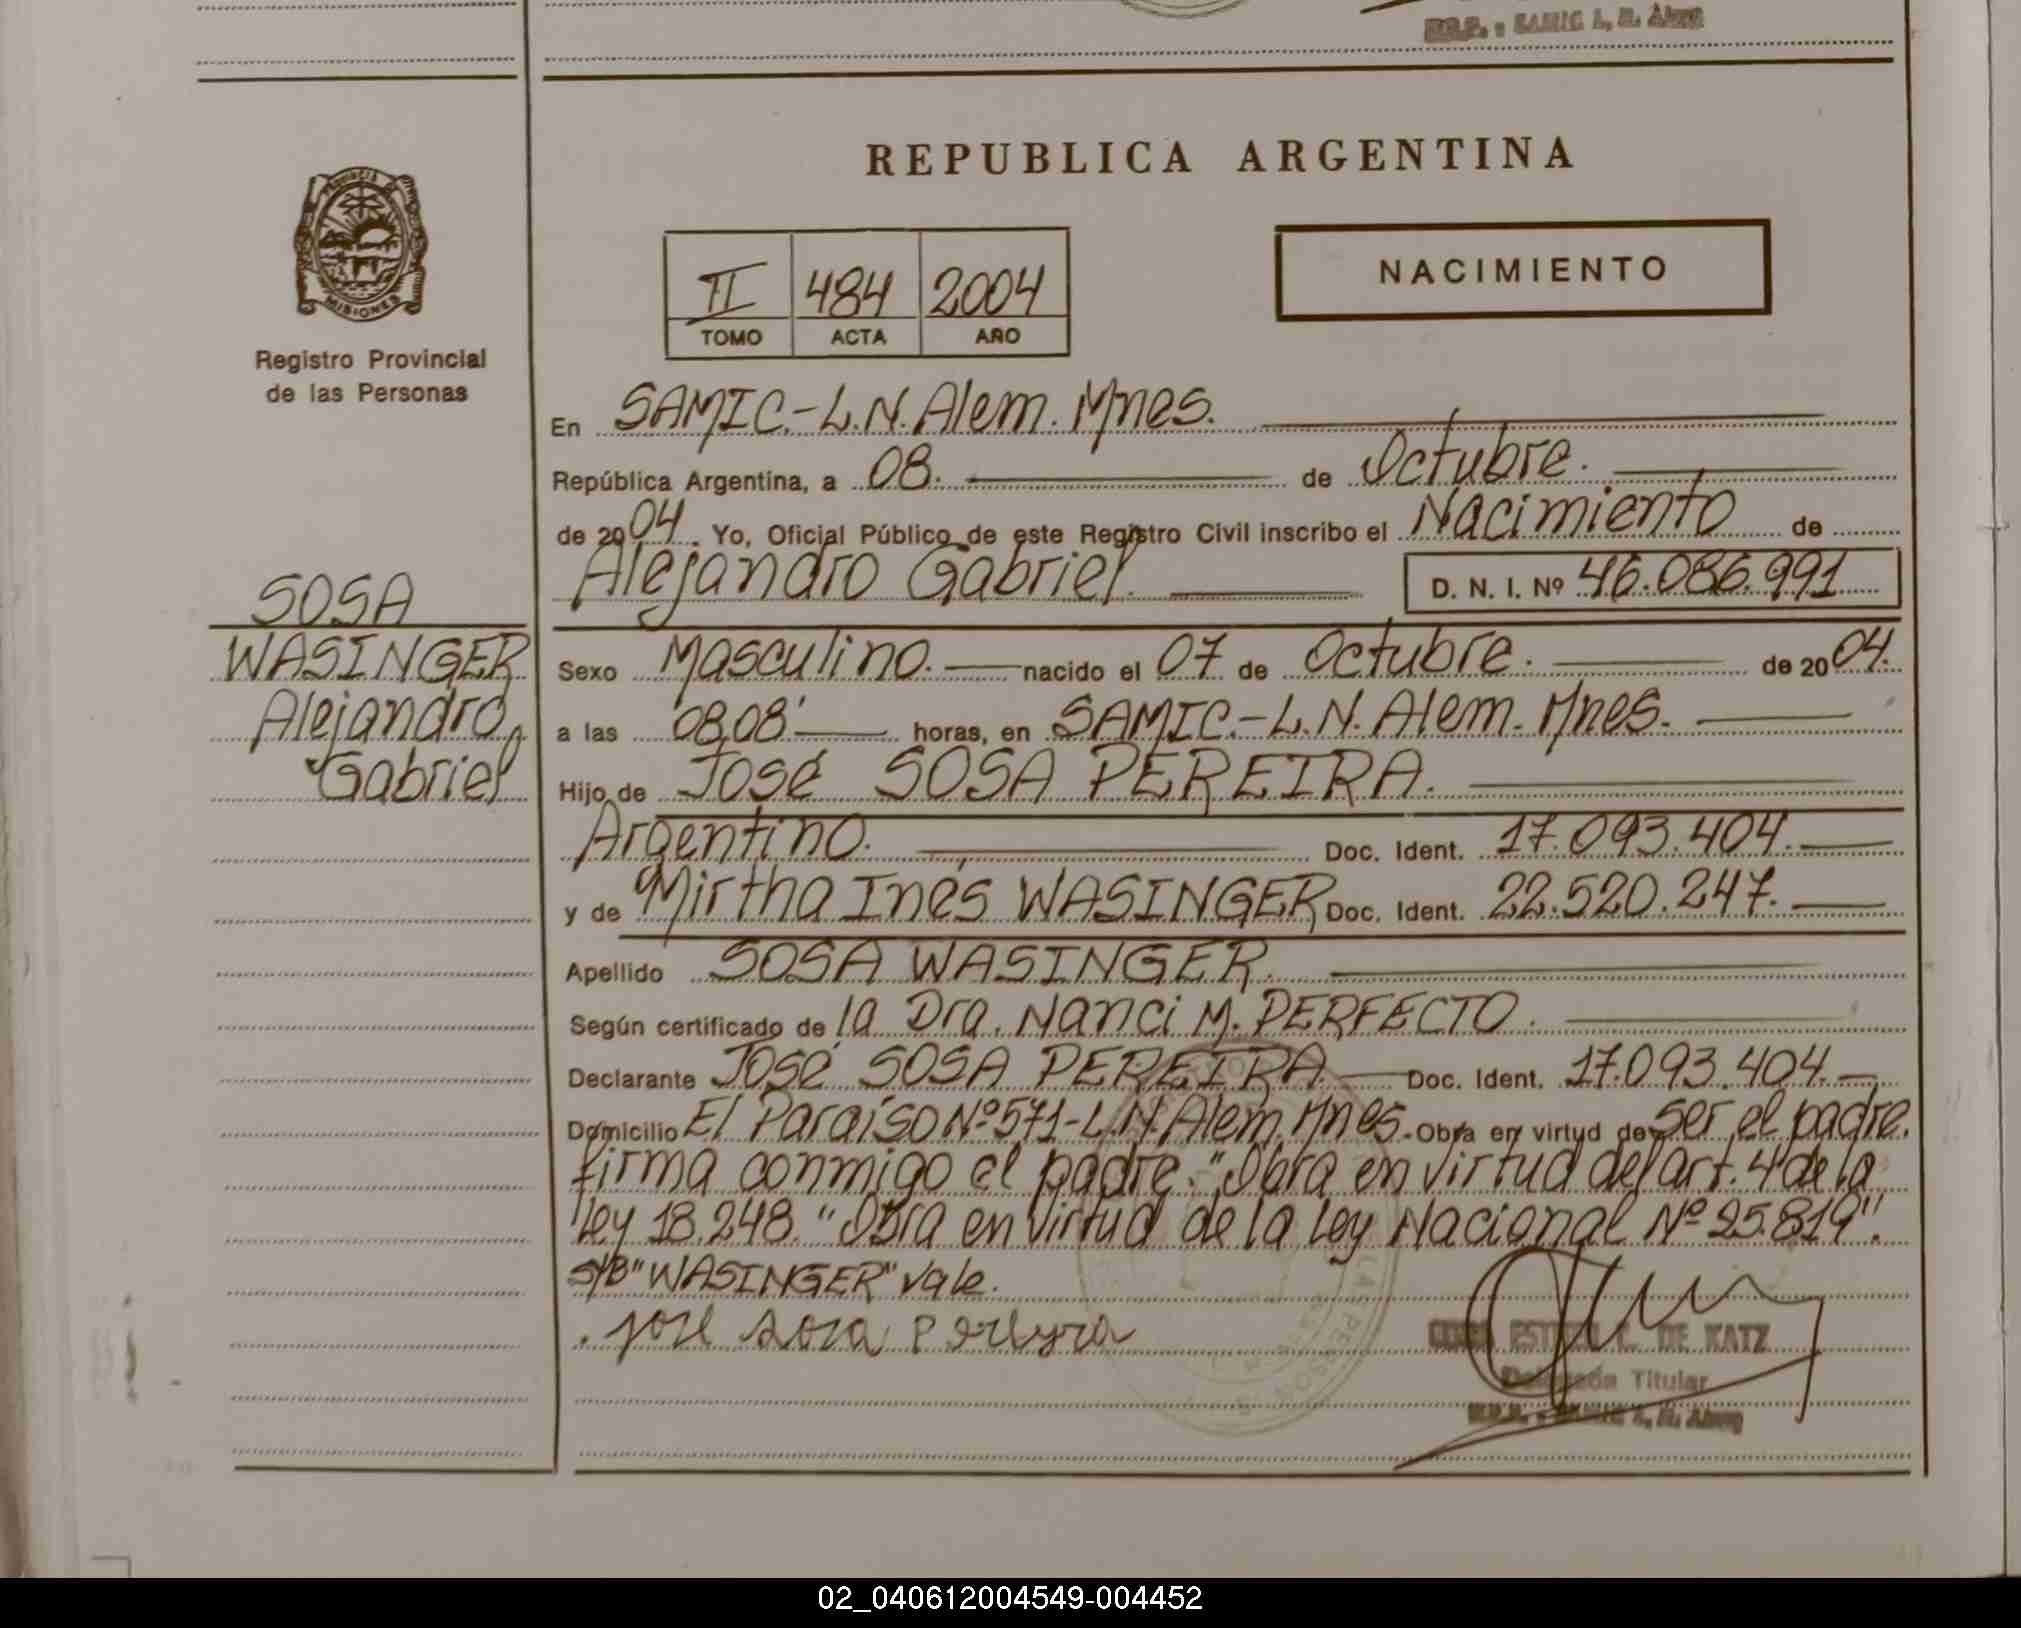 SAMIC L. N. Alem
REPUBLICA ARGENTINA
PROVINCIA DE
MISIONES
Registro Provincial
de las Personas
II 484 2004
TOMO ACTA AÑO
NACIMIENTO
En SAMIC.-L.N.Alem. Mnes.
República Argentina, a 08. de Octubre.
de 2004. Yo, Oficial Público de este Registro Civil inscribo el Nacimiento de
Alejandro Gabriel. D. N. I. Nº 46.086.991
SOSA
WASINGER
Alejandro,
Gabriel
Sexo Masculino. nacido el 07 de Octubre. de 2004.
a las 08,08' horas, en SAMIC.-L.N. Alem. Mnes.
Hijo de José SOSA PEREIRA.
Argentino. Doc. Ident. 17.093.404.
y de Mirtha Inés WASINGER Doc. Ident. 22.520.247.
Apellido SOSA WASINGER.
Según certificado de la Dra. Nanci M. PERFECTO.
Declarante José SOSA PEREIRA. Doc. Ident. 17.093.404.
Domicilio El Paraíso Nº 571-L.N. Alem. Mnes. Obra en virtud de ser el padre.
firma conmigo el padre. "Obra en virtud del art. 4 de la
ley 18.248." "Obra en virtud de la ley Nacional Nº 25.819".
S/B "WASINGER" vale.
José Sosa Pereyra
ESTHER C. DE KATZ
Delegada Titular
L. N. Alem
02_040612004549-004452